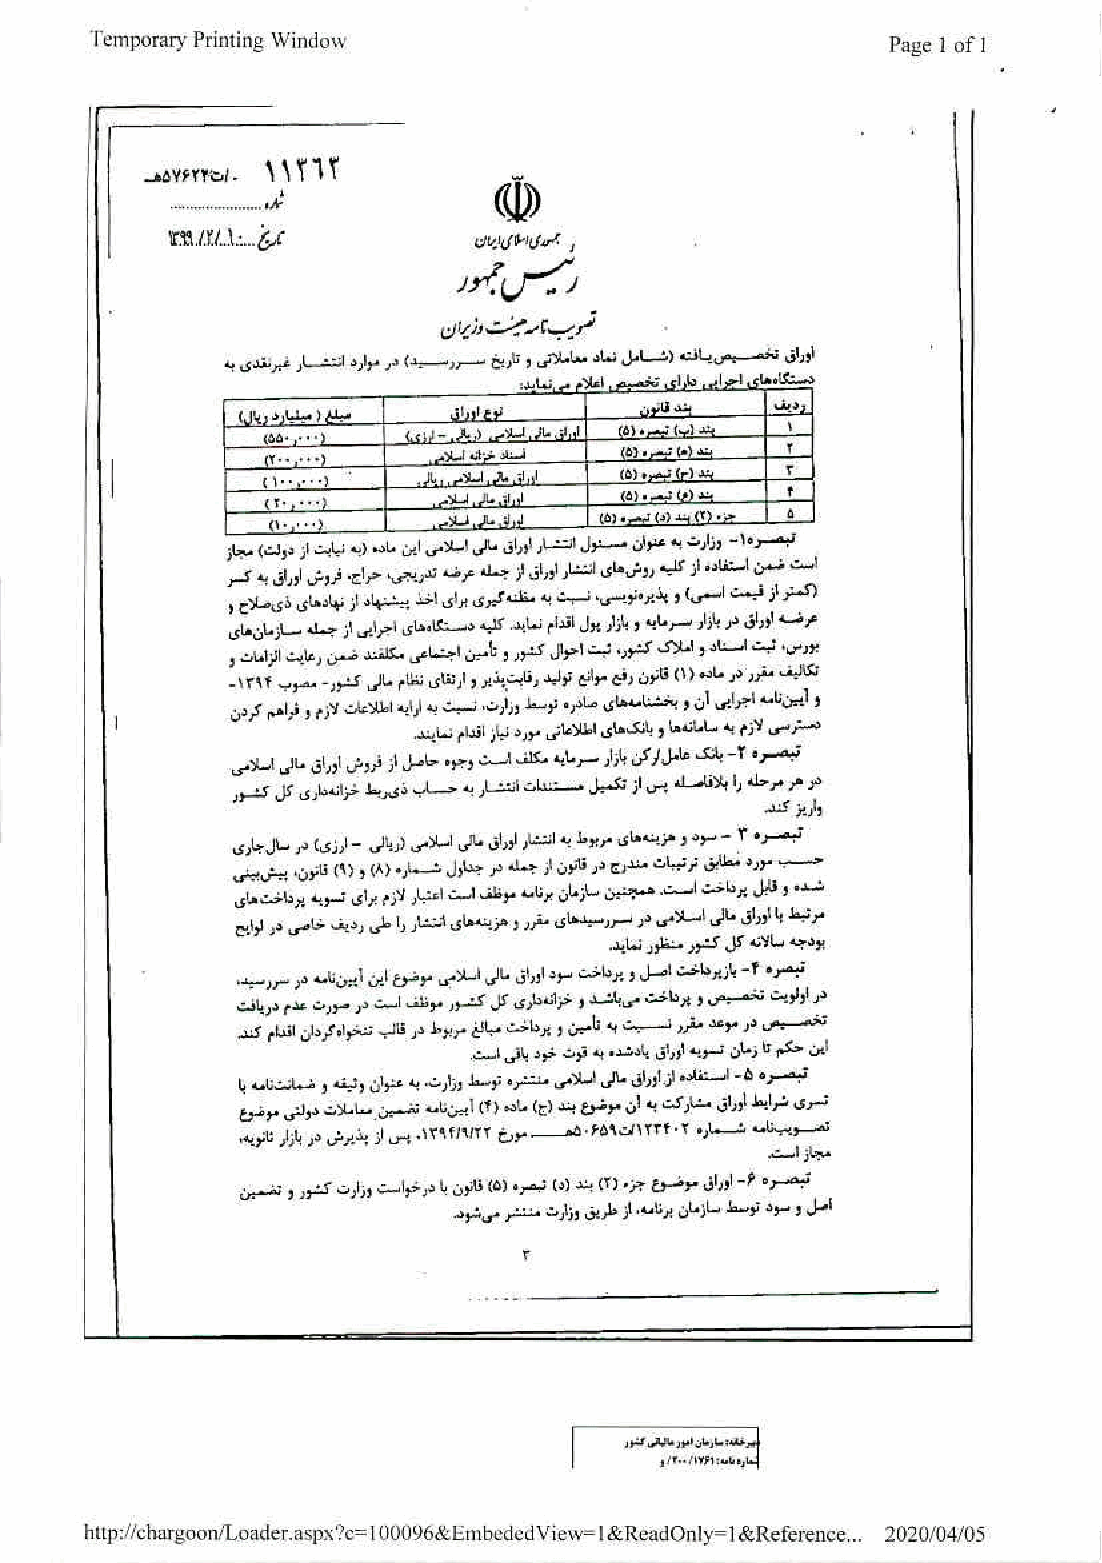 Temporary Printing Window
Page 1 of 1
۱۱۳۶۳ /ت۵۷۶۲۳هـ
شماره
تاریخ ۱۳۹۹/۲/۱۰
جمهوری اسلامی ایران
رئیس جمهور
تصویب نامه هیئت وزیران
اوراق تخصیص‌یافته (شامل نماد معاملاتی و تاریخ سررسید) در موارد انتشار غیرنقدی به
دستگاه‌های اجرایی دارای تخصیص اعلام می‌نماید:
ردیف بند قانون نوع اوراق مبلغ (میلیارد ریال)
۱ بند (ب) تبصره (۵) اوراق مالی اسلامی (ریالی - ارزی) (۵۵۰,۰۰۰)
۲ بند (ه) تبصره (۵) اسناد خزانه اسلامی (۲۰۰,۰۰۰)
۳ بند (م) تبصره (۵) اوراق مالی اسلامی ریالی (۱۰۰,۰۰۰)
۴ بند (ه) تبصره (۵) اوراق مالی اسلامی (۲۰,۰۰۰)
۵ جزء (۲) بند (د) تبصره (۵) اوراق مالی اسلامی (۱۰,۰۰۰)
تبصره۱- وزارت به عنوان مسئول انتشار اوراق مالی اسلامی این ماده (به نیابت از دولت) مجاز
است ضمن استفاده از کلیه روش‌های انتشار اوراق از جمله عرضه تدریجی، حراج، فروش اوراق به کسر
(کمتر از قیمت اسمی) و پذیره‌نویسی، نسبت به مظنه‌گیری برای اخذ پیشنهاد از نهادهای ذی‌صلاح و
عرضه اوراق در بازار سرمایه و بازار پول اقدام نماید. کلیه دستگاه‌های اجرایی از جمله سازمان‌های
بورس، ثبت اسناد و املاک کشور، ثبت احوال کشور و تأمین اجتماعی مکلفند ضمن رعایت الزامات و
تکالیف مقرر در ماده (۱) قانون رفع موانع تولید رقابت‌پذیر و ارتقای نظام مالی کشور- مصوب ۱۳۹۴-
و آیین‌نامه اجرایی آن و بخشنامه‌های صادره توسط وزارت، نسبت به ارایه اطلاعات لازم و فراهم کردن
دسترسی لازم به سامانه‌ها و بانک‌های اطلاعاتی مورد نیاز اقدام نمایند.
تبصره ۲- بانک عامل/رکن بازار سرمایه مکلف است وجوه حاصل از فروش اوراق مالی اسلامی
در هر مرحله را بلافاصله پس از تکمیل مستندات انتشار به حساب ذی‌ربط خزانه‌داری کل کشور
واریز کند.
تبصره ۳ - سود و هزینه‌های مربوط به انتشار اوراق مالی اسلامی (ریالی - ارزی) در سال جاری
حسب مورد مطابق ترتیبات مندرج در قانون از جمله در جداول شماره (۸) و (۹) قانون، پیش‌بینی
شده و قابل پرداخت است. همچنین سازمان برنامه موظف است اعتبار لازم برای تسویه پرداخت‌های
مرتبط با اوراق مالی اسلامی در سررسیدهای مقرر و هزینه‌های انتشار را طی ردیف خاصی در لوایح
بودجه سالانه کل کشور منظور نماید.
تبصره ۴- بازپرداخت اصل و پرداخت سود اوراق مالی اسلامی موضوع این آیین‌نامه در سررسید،
در اولویت تخصیص و پرداخت می‌باشد و خزانه‌داری کل کشور موظف است در صورت عدم دریافت
تخصیص در موعد مقرر نسبت به تأمین و پرداخت مبالغ مربوط در قالب تنخواه‌گردان اقدام کند.
این حکم تا زمان تسویه اوراق یادشده به قوت خود باقی است.
تبصره ۵- استفاده از اوراق مالی اسلامی منتشره توسط وزارت، به عنوان وثیقه و ضمانت‌نامه با
تسری شرایط اوراق مشارکت به آن موضوع بند (ج) ماده (۴) آیین‌نامه تضمین معاملات دولتی موضوع
تصویب‌نامه شماره ۱۲۳۴۰۲/ت۵۰۶۵۹هـ مورخ ۱۳۹۴/۹/۲۲، پس از پذیرش در بازار ثانویه،
مجاز است.
تبصره ۶- اوراق موضوع جزء (۲) بند (د) تبصره (۵) قانون با درخواست وزارت کشور و تضمین
اصل و سود توسط سازمان برنامه، از طریق وزارت منتشر می‌شود.
۲
سازمان امور مالیاتی کشور
۲۰۰/۱۷۶۱/و
http://chargoon/Loader.aspx?c=100096&EmbededView=1&ReadOnly=1&Reference... 2020/04/05